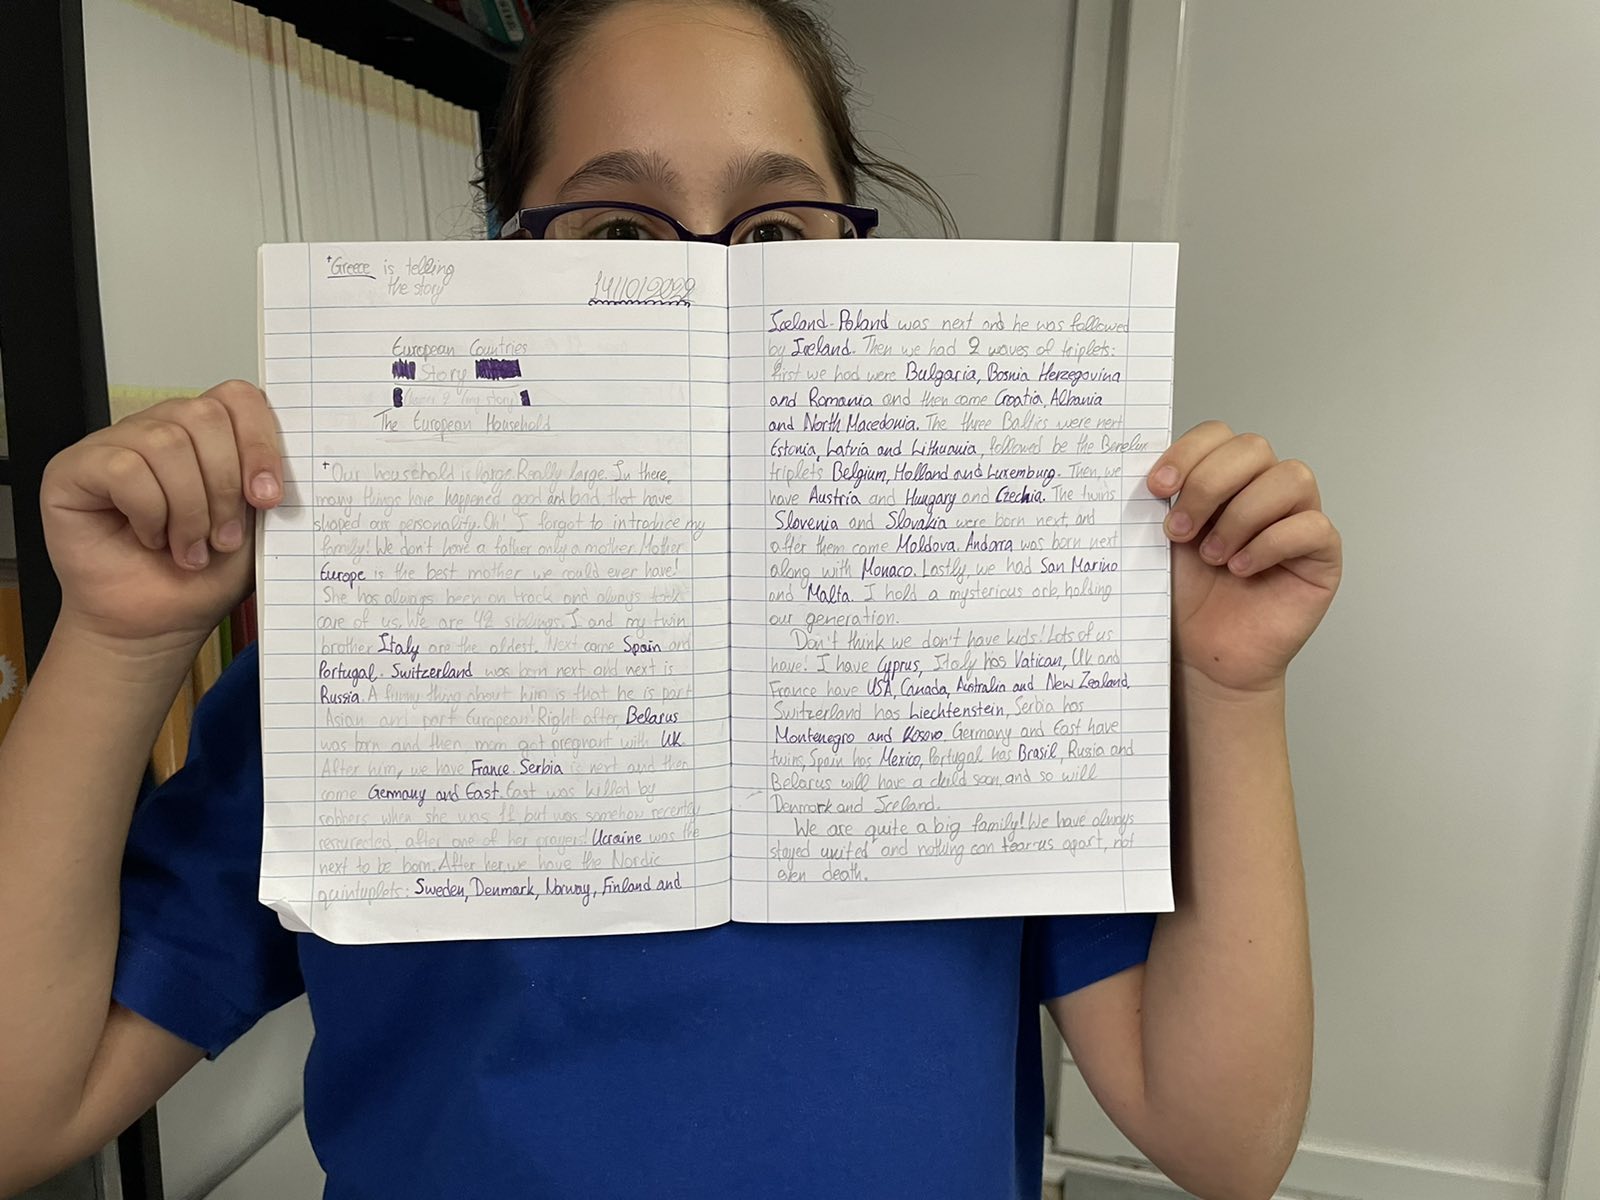 +Greece is telling
the story
14/10/2022
European Countries
Story
(my story)
The European Household
+Our household is large. Really large. In there,
many things have happened good and bad, that have
shaped our personality. Oh! I forgot to introduce my
family! We don't have a father only a mother. Mother
Europe is the best mother we could ever have!
She has always been on track and always took
care of us. We are 42 siblings. I and my twin
brother Italy are the oldest. Next came Spain and
Portugal. Switzerland was born next and next is
Russia. A funny thing about him is that he is part
Asian and part European! Right after, Belarus
was born and then, mom got pregnant with UK.
After him, we have France. Serbia is next and then
came Germany and East. East was killed by
robbers when she was 11, but was somehow recently
resurected, after one of her prayers! Ucraine was the
next to be born. After her, we have the Nordic
quintuplets: Sweden, Denmark, Norway, Finland and
Iceland. Poland was next and he was followed
by Ireland. Then we had 2 waves of triplets:
first we had were Bulgaria, Bosnia Herzegovina
and Romania and then came Croatia, Albania
and North Macedonia. The three Baltics were next
Estonia, Latvia and Lithuania, followed be the Benelux
triplets Belgium, Holland and Luxemburg. Then, we
have Austria and Hungary and Czechia. The twins
Slovenia and Slovakia were born next, and
after them came Moldova. Andora was born next
along with Monaco. Lastly, we had San Marino
and Malta. I hold a mysterious orb, holding
our generation.
Don't think we don't have kids! Lots of us
have! I have Cyprus, Italy has Vatican, Uk and
France have USA, Canada, Australia and New Zealand,
Switzerland has Liechtenstein, Serbia has
Montenegro and Kosovo, Germany and East have
twins, Spain has Mexico, Portugal has Brasil, Russia and
Belarus will have a child soon, and so will
Denmark and Iceland.
We are quite a big family! We have always
stayed united and nothing can tear us apart, not
even death.